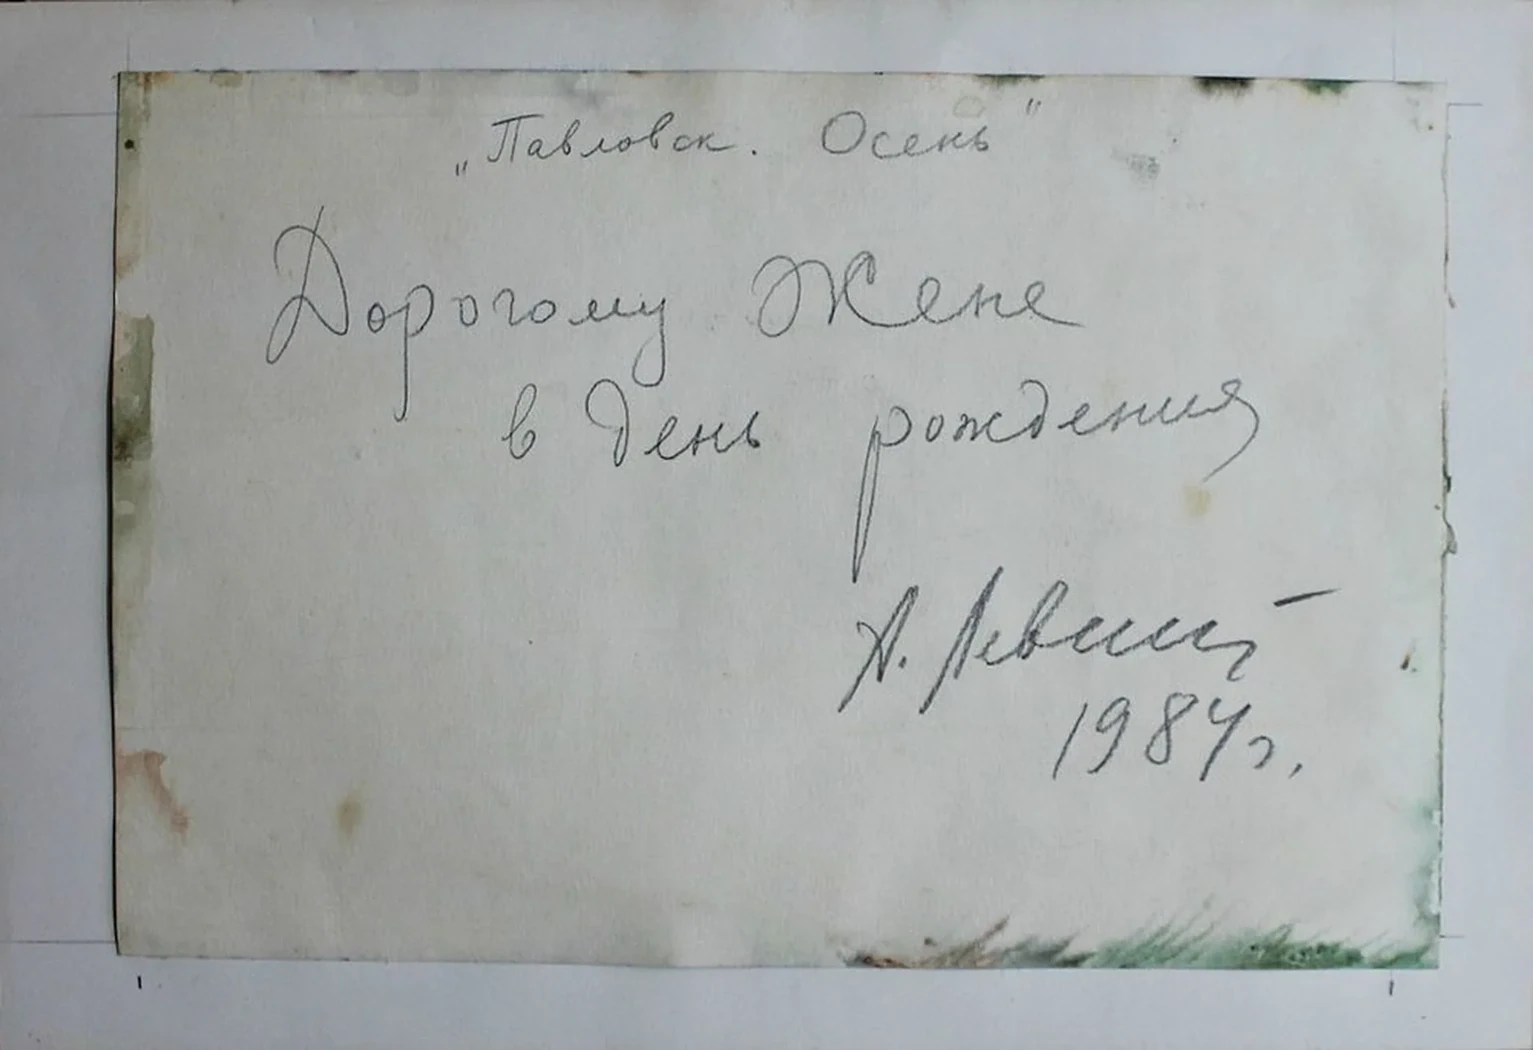 „Павловск. Осень"
Дорогому Жене
в день рождения
А.
1984г.